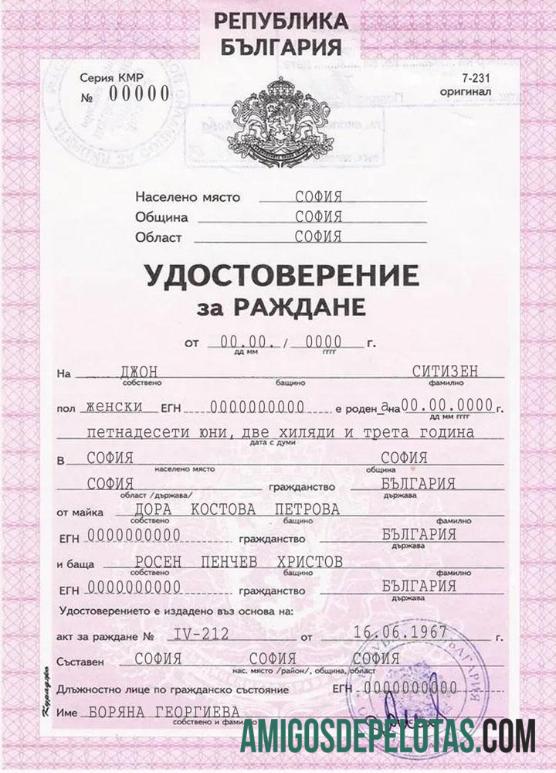 РЕПУБЛИКА
БЪЛГАРИЯ
Серия КМР
№ 00000
7-231
оригинал
Населено място СОФИЯ
Община СОФИЯ
Област СОФИЯ
УДОСТОВЕРЕНИЕ
за РАЖДАНЕ
от 00.00. / 0000 г.
дд мм гггг
На ДЖОН СИТИЗЕН
собствено бащино фамилно
пол женски ЕГН 0000000000 е роден а на 00.00.0000 г.
дд мм гггг
петнадесети юни, две хиляди и трета година
дата с думи
В СОФИЯ СОФИЯ
населено място община
СОФИЯ гражданство БЪЛГАРИЯ
област /държава/ държава
от майка ДОРА КОСТОВА ПЕТРОВА
собствено бащино фамилно
ЕГН 0000000000 гражданство БЪЛГАРИЯ
държава
и баща РОСЕН ПЕНЧЕВ ХРИСТОВ
собствено бащино фамилно
ЕГН 0000000000 гражданство БЪЛГАРИЯ
държава
Удостоверението е издадено въз основа на:
акт за раждане № IV-212 от 16.06.1967 г.
Съставен СОФИЯ СОФИЯ СОФИЯ
нас. място /район/, община, област
Длъжностно лице по гражданско състояние ЕГН 0000000000
Име БОРЯНА ГЕОРГИЕВА
собствено и фамилно
AMIGOSDEPELOTAS.COM